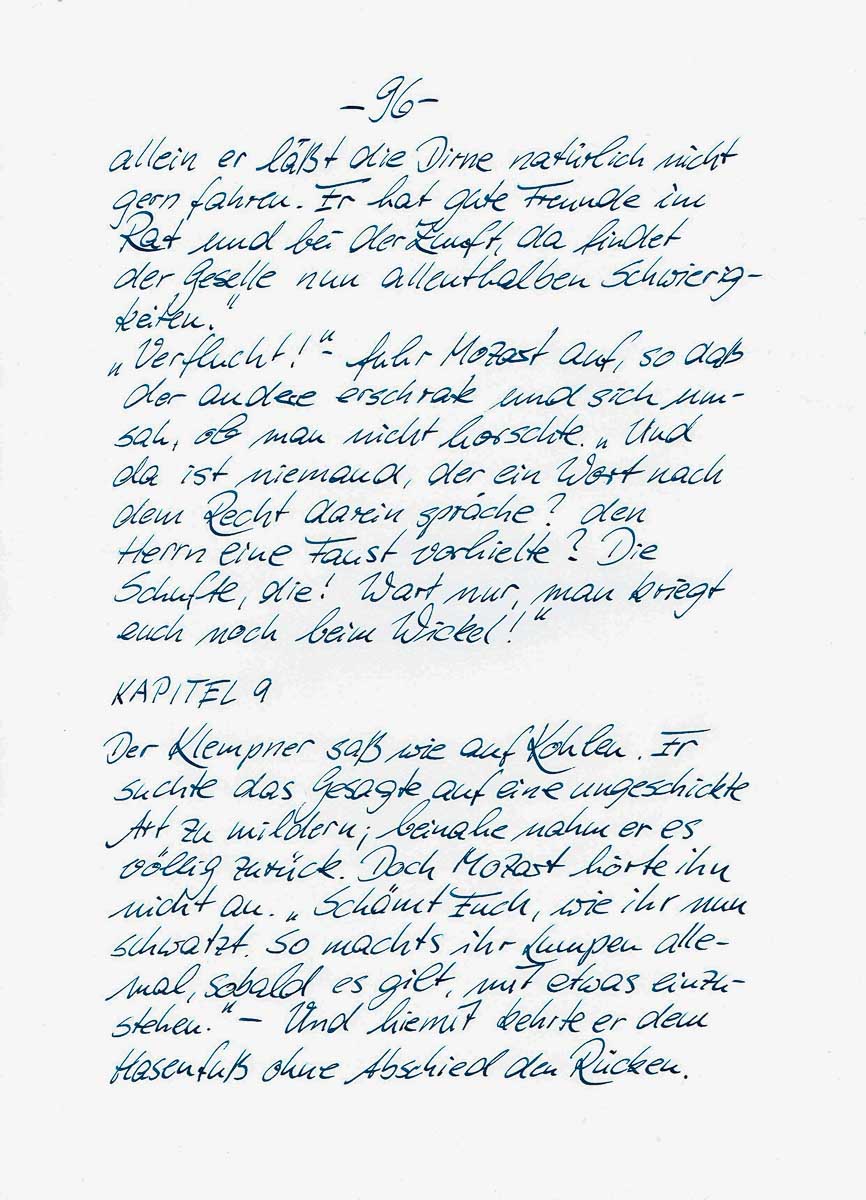 -96-
allein er läßt die Dirne natürlich nicht
gern fahren. Er hat gute Freunde im
Rat und bei der Zunft, da findet
der Geselle nun allenthalben Schwierig-
keiten."
„Verflucht!" - fuhr Mozart auf, so daß
der andere erschrak und sich um-
sah, ob man nicht horschte. „Und
da ist niemand, der ein Wort nach
dem Recht darein spräche? den
Herrn eine Faust vorhielte? Die
Schufte, die! Wart nur, man kriegt
euch noch beim Wickel!"
KAPITEL 9
Der Klempner saß wie auf Kohlen. Er
suchte das Gesagte auf eine ungeschickte
Art zu mildern; beinahe nahm er es
völlig zurück. Doch Mozart hörte ihn
nicht an. „Schämt Euch, wie ihr nun
schwatzt. So machts ihr Lumpen alle-
mal, sobald es gilt, mit etwas einzu-
stehen." - Und hiemit kehrte er dem
Hasenfuß ohne Abschied den Rücken.